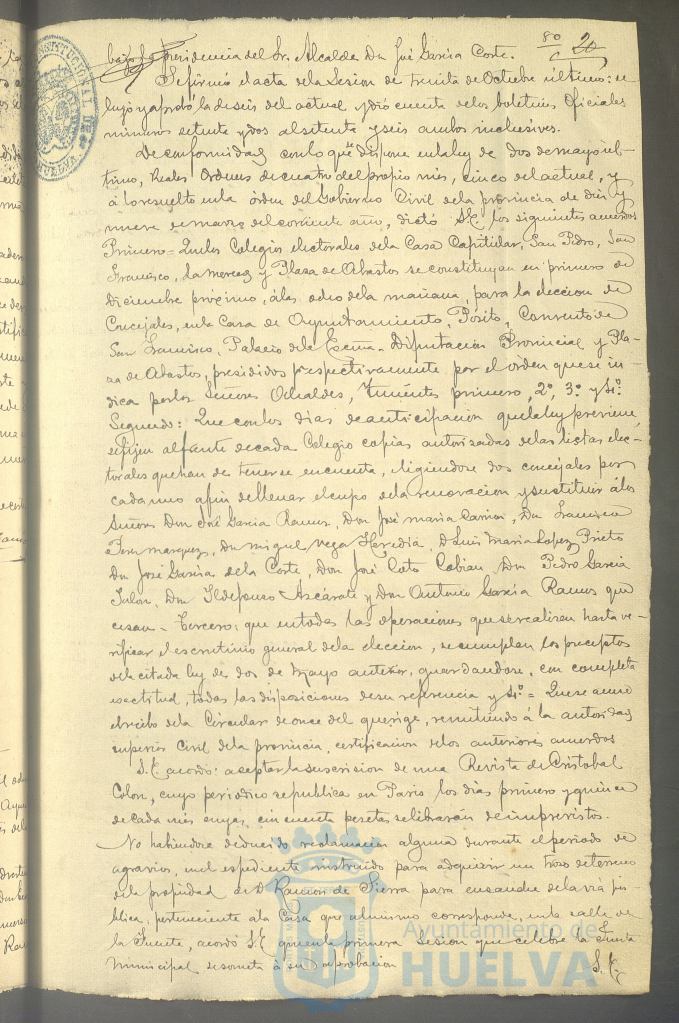 80
20
bajo la presidencia del Sr. Alcalde Dn José Garcia Corte.
Se firmó el acta de la Sesion de treinta de Octubre último: se
leyó y aprobó la de seis del actual y dió cuenta de los boletines Oficiales
números setenta y dos al setenta y seis ambos inclusives.
De conformidad con lo que se dispone en la ley de dos de mayo úl-
timo, Reales Ordenes de cuatro del propio mes, cinco del actual, y
á lo resuelto en la órden del Gobierno Civil de la provincia de diez y
nueve de marzo del corriente año, dictó S.E. los siguientes acuerdos
Primero = Qu los Colegios electorales de la Casa Capitular, San Pedro, San
Francisco, La merced y Plaza de Abastos se constituyan en primero de
Diciembre próximo, á las ocho de la mañana, para la eleccion de
Concejales, en la Casa de Ayuntamiento, Pósito, Convento de
San Francisco, Palacio de la Excma. Diputacion Provincial y Pla-
za de Abastos, presididos respectivamente por el orden que se in-
dica por los Señores Alcaldes, Tenientes primero, 2º, 3º y 4º.
Segundo: Que con los dias de anticipacion que la ley previene,
se fijen al frente de cada Colegio copias autorizadas de las listas elec-
torales que han de tenerse en cuenta, eligiendose dos concejales por
cada uno a fin de llenar el cupo de la renovacion y sustituir á los
Señores Don José Garcia Ramos, Don José maria Carrion, Dn Francisco
marquez, Dn miguel Vega Heredia, D Luis Maria Lopez Prieto
Dn José Garcia de la Corte, Don José Coto Cobian Dn Pedro Garcia
Dn Ildefonso Ascárate y Don Antonio Garcia Ramos que
cesan - Tercero: que en todas las operaciones que se realizan hasta ve-
rificar el escrutinio general de la eleccion, se cumplan los preceptos
de la citada ley de dos de Mayo anterior, guardandose, con completa
exactitud, todas las disposiciones de su referencia y 4º = Que se acuse
el recibo de la Circular de once del que rige, remitiendo á la autoridad
superior Civil de la provincia, certificacion de los anteriores acuerdos
S.E. acordó: aceptar la suscrision de una Revista de Cristobal
Colon, cuyo periodico se publica en Paris los dias primero y quince
de cada mes cuyas cincuenta pesetas se librarán de imprevistos.
No habiendose deducido reclamacion alguna durante el periodo de
agravios, en el espediente instruido para adquirir un trozo de terreno
de la propiedad de D. Ramon de Sierra para ensanche de la via pú-
blica, perteneciente á la Casa que al mismo corresponde, en la calle de
la Fuente, acordó S.E. que en la primera Sesion que celebre la Junta
municipal se someta á su aprobacion
S.E.
Ayuntamiento de
HUELVA